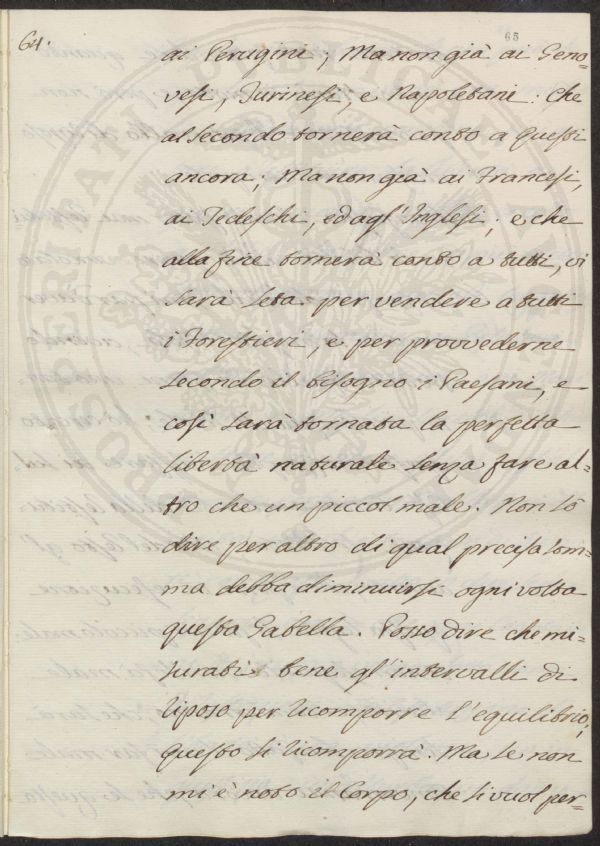 64.
65
ai Perugini; Ma non già ai Geno=
vesi, Turinesi, e Napoletani: che
al secondo tornerà conto a questi
ancora; Ma non già ai Francesi,
ai Tedeschi, ed agl'Inglesi; e che
alla fine tornerà conto a tutti, vi
sarà seta per vendere a tutti
i Forestieri, e per provvederne
secondo il bisogno i Paesani, e
così sarà tornata la perfetta
libertà naturale senza fare al=
tro che un piccol male. Non sò
dire per altro di qual precisa som=
ma debba diminuirsi ogni volta
questa Gabella. Posso dire che mi=
surati bene gl'intervalli di
riposo per ricomporre l'equilibrio,
questo si ricomporrà. Ma se non
mi è noto il Corpo, che si vuol per=